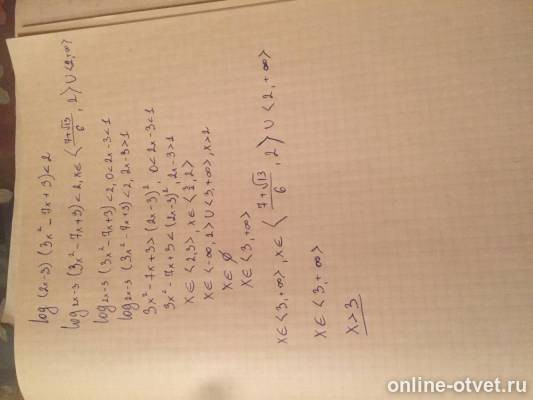 log (2x-3) (3x²-7x+3)<2
log 2x-3 (3x²-7x+3)<2, x∈⟨(7+√13)/6, 2⟩∪⟨2,+∞⟩
log 2x-3 (3x²-7x+3)<2, 0<2x-3<1
log 2x-3 (3x²-7x+3)<2, 2x-3>1
3x²-7x+3>(2x-3)², 0<2x-3<1
3x²-7x+3<(2x-3)², 2x-3>1
x∈⟨2,3⟩, x∈⟨3/2,2⟩
x∈⟨-∞,2⟩∪⟨3,+∞⟩, x>2
x∈∅
x∈⟨3,+∞⟩
x∈⟨3,+∞⟩, x∈⟨(7+√13)/6, 2⟩∪⟨2,+∞⟩
x∈⟨3,+∞⟩
x>3
online-otvet.ru